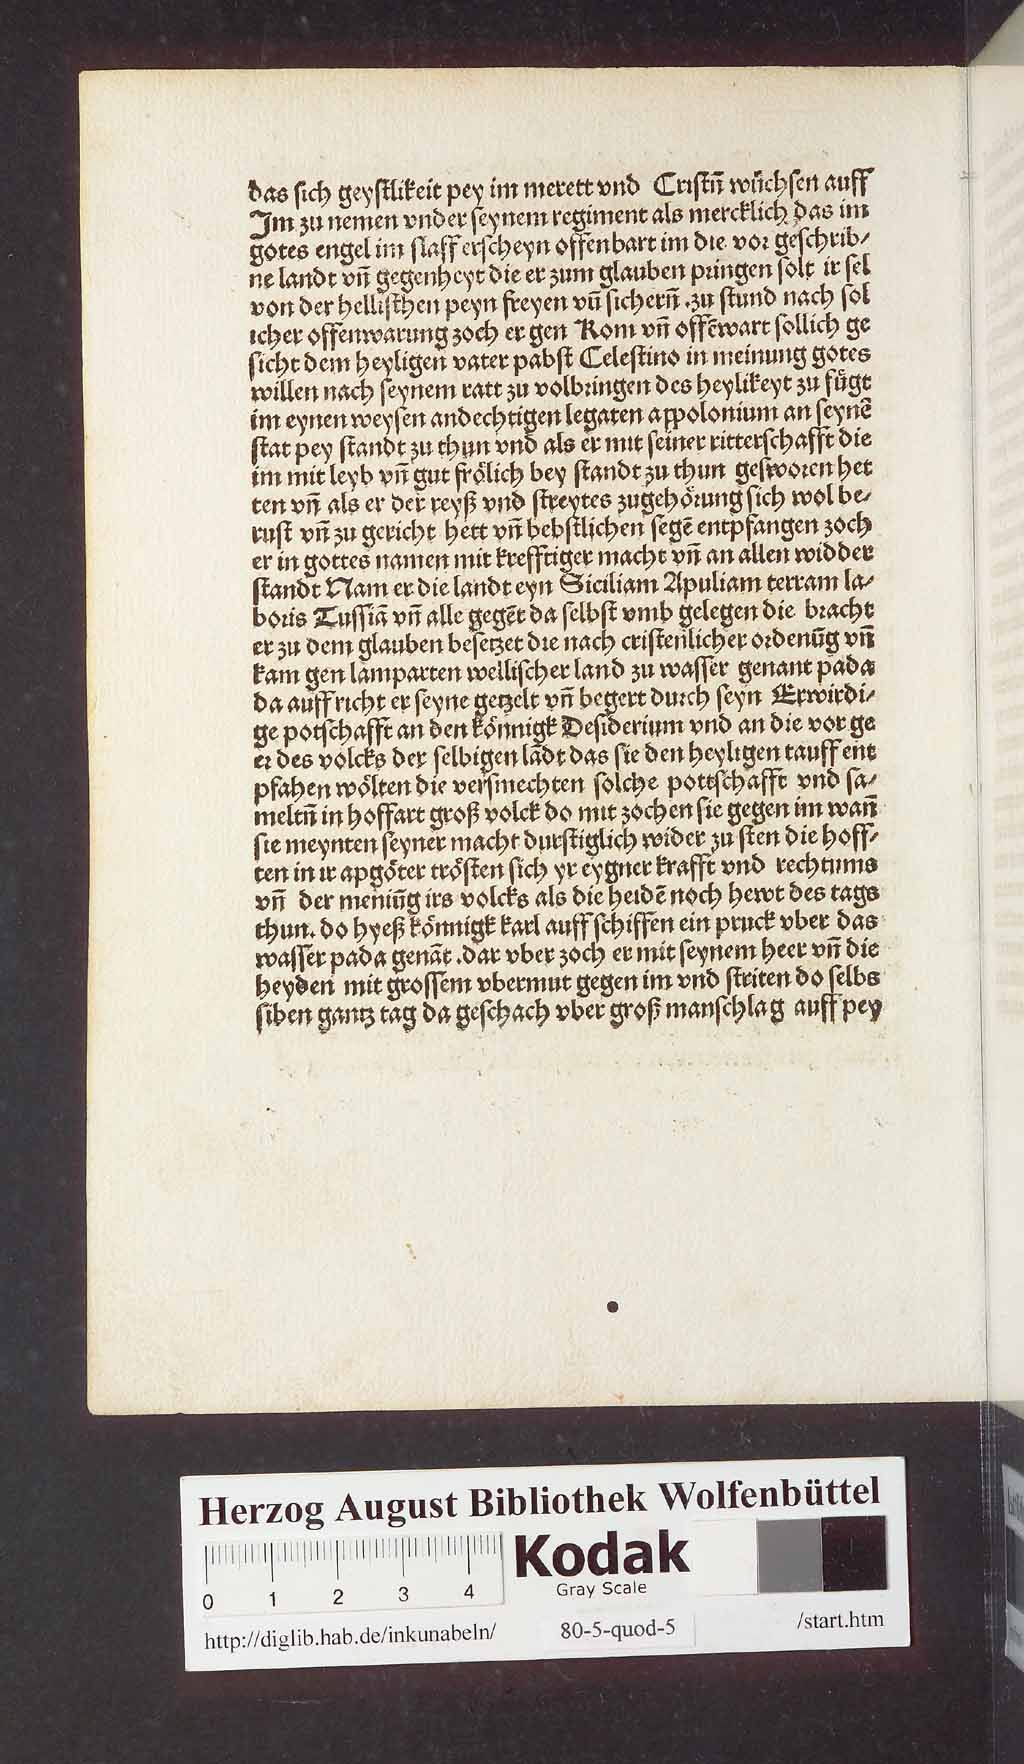 das sich geystlikeit pey im merett vnd Cristn̄ wüchsen auff
Im zu nemen vnder seynem regiment als mercklich das im
gotes engel im slaff erscheyn offenbart im die vor geschrib⸗
ne landt vn̄ gegenheyt die er zum glauben pringen solt ir sel
von der hellisthen peyn freyen vn̄ sichern̄ .zu stund nach sol
icher offenwarung zoch er gen Rom vn̄ offēwart sollich ge
sicht dem heyligen vater pabst Celestino in meinung gotes
willen nach seynem ratt zu volbringen des heylikeyt zu fůgt
im eynen weysen andechtigen legaten appolonium an seynē
stat pey standt zu thun vnd als er mit seiner ritterschafft die
im mit leyb vn̄ gut frölich bey standt zu thun gesworen het
ten vn̄ als er der reyß vnd streytes zugehörung sich wol be⸗
rust vn̄ zu gericht hett vn̄ bebstlichen segē entpfangen zoch
er in gottes namen mit krefftiger macht vn̄ an allen widder
standt Nam er die landt eyn Siciliam Apuliam terram la⸗
boris Tussiā vn̄ alle gegēt da selbst vmb gelegen die bracht
er zu dem glauben besetzet die nach cristenlicher ordenūg vn̄
kam gen lamparten wellischer land zu wasser genant pada
da auff richt er seyne getzelt vn̄ begert durch seyn Erwirdi⸗
ge potschafft an den könnigk Desiderium vnd an die vor ge
er des volcks der selbigen lādt das sie den heyligen tauff ent
pfahen wölten die versmechten solche pottschafft vnd sa⸗
meltn̄ in hoffart groß volck do mit zochen sie gegen im wan̄
sie meynten seyner macht durstiglich wider zu sten die hoff⸗
ten in ir apgöter trösten sich yr eygner krafft vnd rechtums
vn̄ der meniūg irs volcks als die heidē noch hewt des tags
thun. do hyeß könnigk karl auff schiffen ein pruck vber das
wasser pada genāt .dar vber zoch er mit seynem heer vn̄ die
heyden mit grossem vbermut gegen im vnd striten do selbs
siben gantz tag da geschach vber groß manschlag auff pey
Herzog August Bibliothek Wolfenbüttel
Kodak
Gray Scale
0 1 2 3 4
http://diglib.hab.de/inkunabeln/ 80-5-quod-5 /start.htm